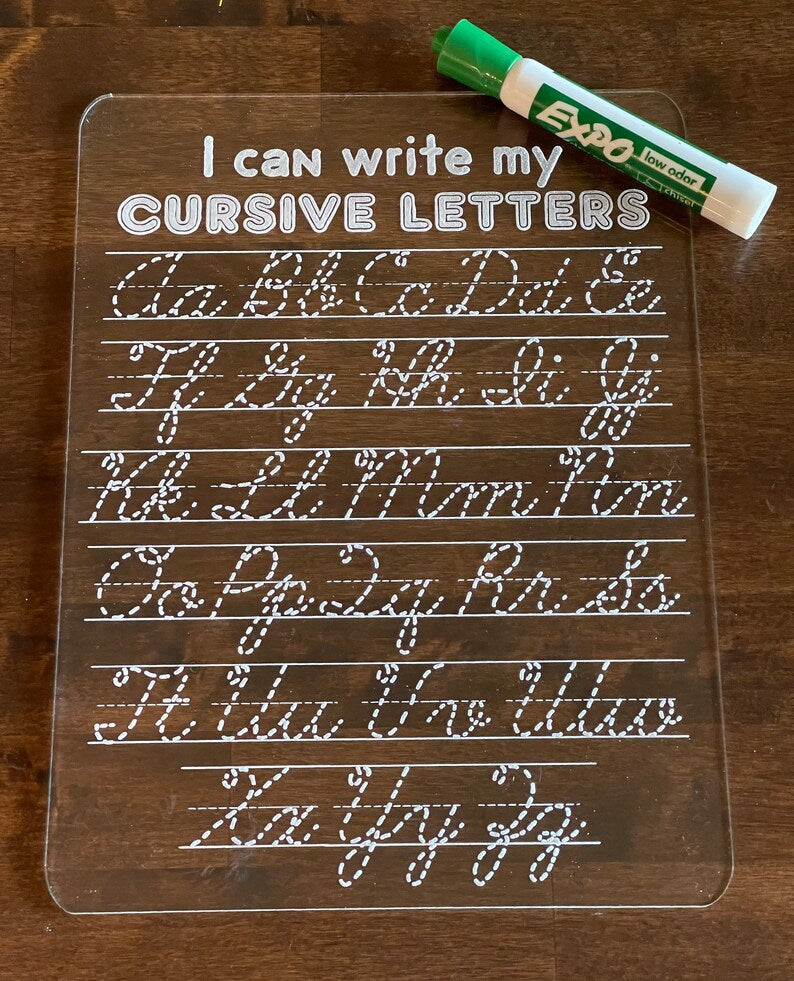 I can write my
CURSIVE LETTERS
Aa Bb Cc Dd Ee
Ff Gg Hh Ii Jj
Kk Ll Mm Nn
Oo Pp Qq Rr Ss
Tt Uu Vv Ww
Xx Yy Zz
EXPO
low odor
chisel